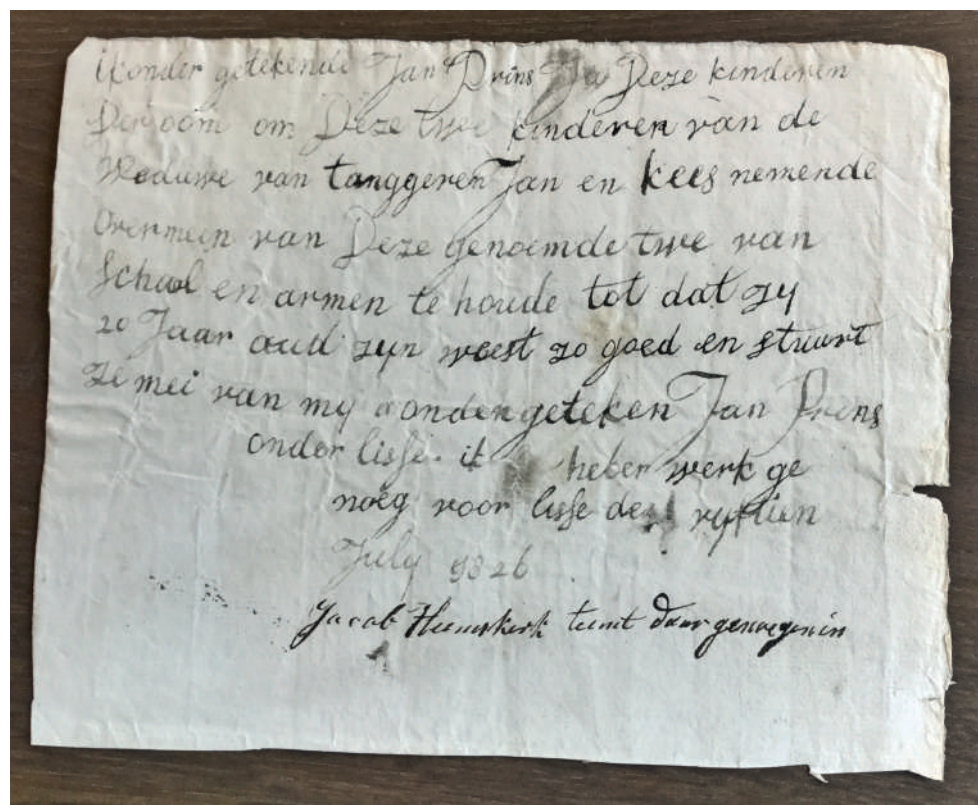 ik onder getekende Jan Prins Deze kinderen
Der oom om Deze twe kinderen van de
Weduwe van tanggeren Jan en kees nemende
overmein van Deze genoemde twe van
School en armen te houde tot dat zy
20 Jaar oud zyn weest zo goed en stuurt
ze mei van my ondergeteken Jan Prens
onder lisse. ik heber werk ge
noeg voor lisse de vyftien
July 1826
Jacob Heemskerk teemt daar genoegen in